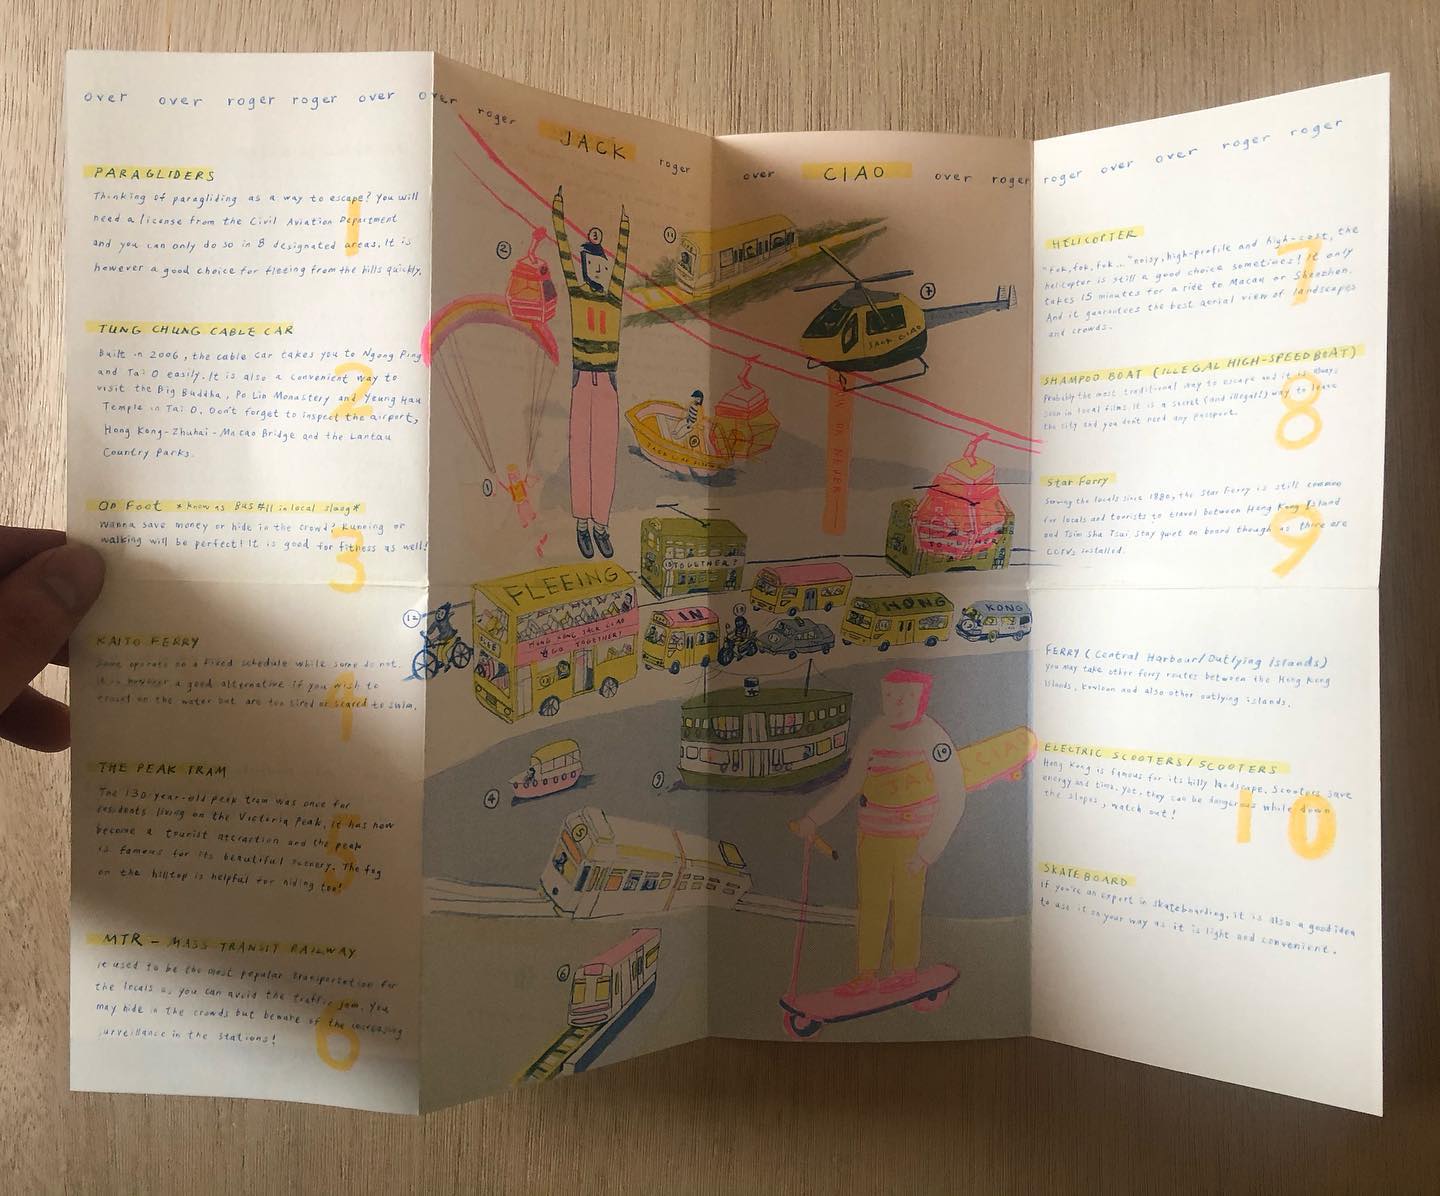 over over roger roger over over roger
JACK
roger
over
CIAO
over roger roger over over roger roger
PARAGLIDERS
Thinking of paragliding as a way to escape? You will
need a license from the Civil Aviation Department
and you can only do so in 8 designated areas. It is
however a good choice for fleeing from the hills quickly.
1
TUNG CHUNG CABLE CAR
Built in 2006, the cable car takes you to Ngong Ping
and Tai O easily. It is also a convenient way to
visit the Big Buddha, Po Lin Monastery and Yeung Hau
Temple in Tai O. Don't forget to inspect the airport,
Hong Kong-Zhuhai-Macao Bridge and the Lantau
Country Parks.
2
On Foot *know as BUS #11 in local slang*
Wanna save money or hide in the crowd? Running or
walking will be perfect! It is good for fitness as well!
3
KAITO FERRY
Some operate on a fixed schedule while some do not.
It is however a good alternative if you wish to
travel on the water but are too tired or scared to swim.
THE PEAK TRAM
The 130-year-old peak tram was once for
residents living on the Victoria Peak, it has now
become a tourist attraction and the peak
is famous for its beautiful scenery. The fog
on the hilltop is helpful for hiding too!
5
MTR - MASS TRANSIT RAILWAY
It used to be the most popular transportation for
the locals as you can avoid the traffic jam. You
may hide in the crowds but beware of the increasing
surveillance in the stations!
6
2
3
11
7
JACK CIAO
1
NOW OR NEVER
TOGETHER?
TOGETHER?
12
FLEEING
HONG KONG JACK CIAO
GO TOGETHER?
IN
HONG
KONG
10
CIAO
9
4
5
6
HELICOPTER
"Fok, fok, fok..." noisy, high-profile and high-cost, the
helicopter is still a good choice sometimes! It only
takes 15 minutes for a ride to Macau or Shenzhen.
And it guarantees the best aerial view of landscapes
and crowds.
7
SHAMPOO BOAT (ILLEGAL HIGH-SPEED BOAT)
Probably the most traditional way to escape and it is always
seen in local films. It is a secret (and illegal!) way to leave
the city and you don't need any passport.
8
Star Ferry
Serving the locals since 1880, the Star Ferry is still common
for locals and tourists to travel between Hong Kong Island
and Tsim Sha Tsui. Stay quiet on board though as there are
CCTVs installed.
9
FERRY (Central Harbour/Outlying islands)
You may take other ferry routes between the Hong Kong
Islands, Kowloon and also other outlying islands.
ELECTRIC SCOOTERS/SCOOTERS
Hong Kong is famous for its hilly landscape. Scooters save
energy and time. Yet, they can be dangerous while down
the slopes, watch out!
10
SKATEBOARD
If you're an expert in skateboarding, it is also a good idea
to use it on your way as it is light and convenient.